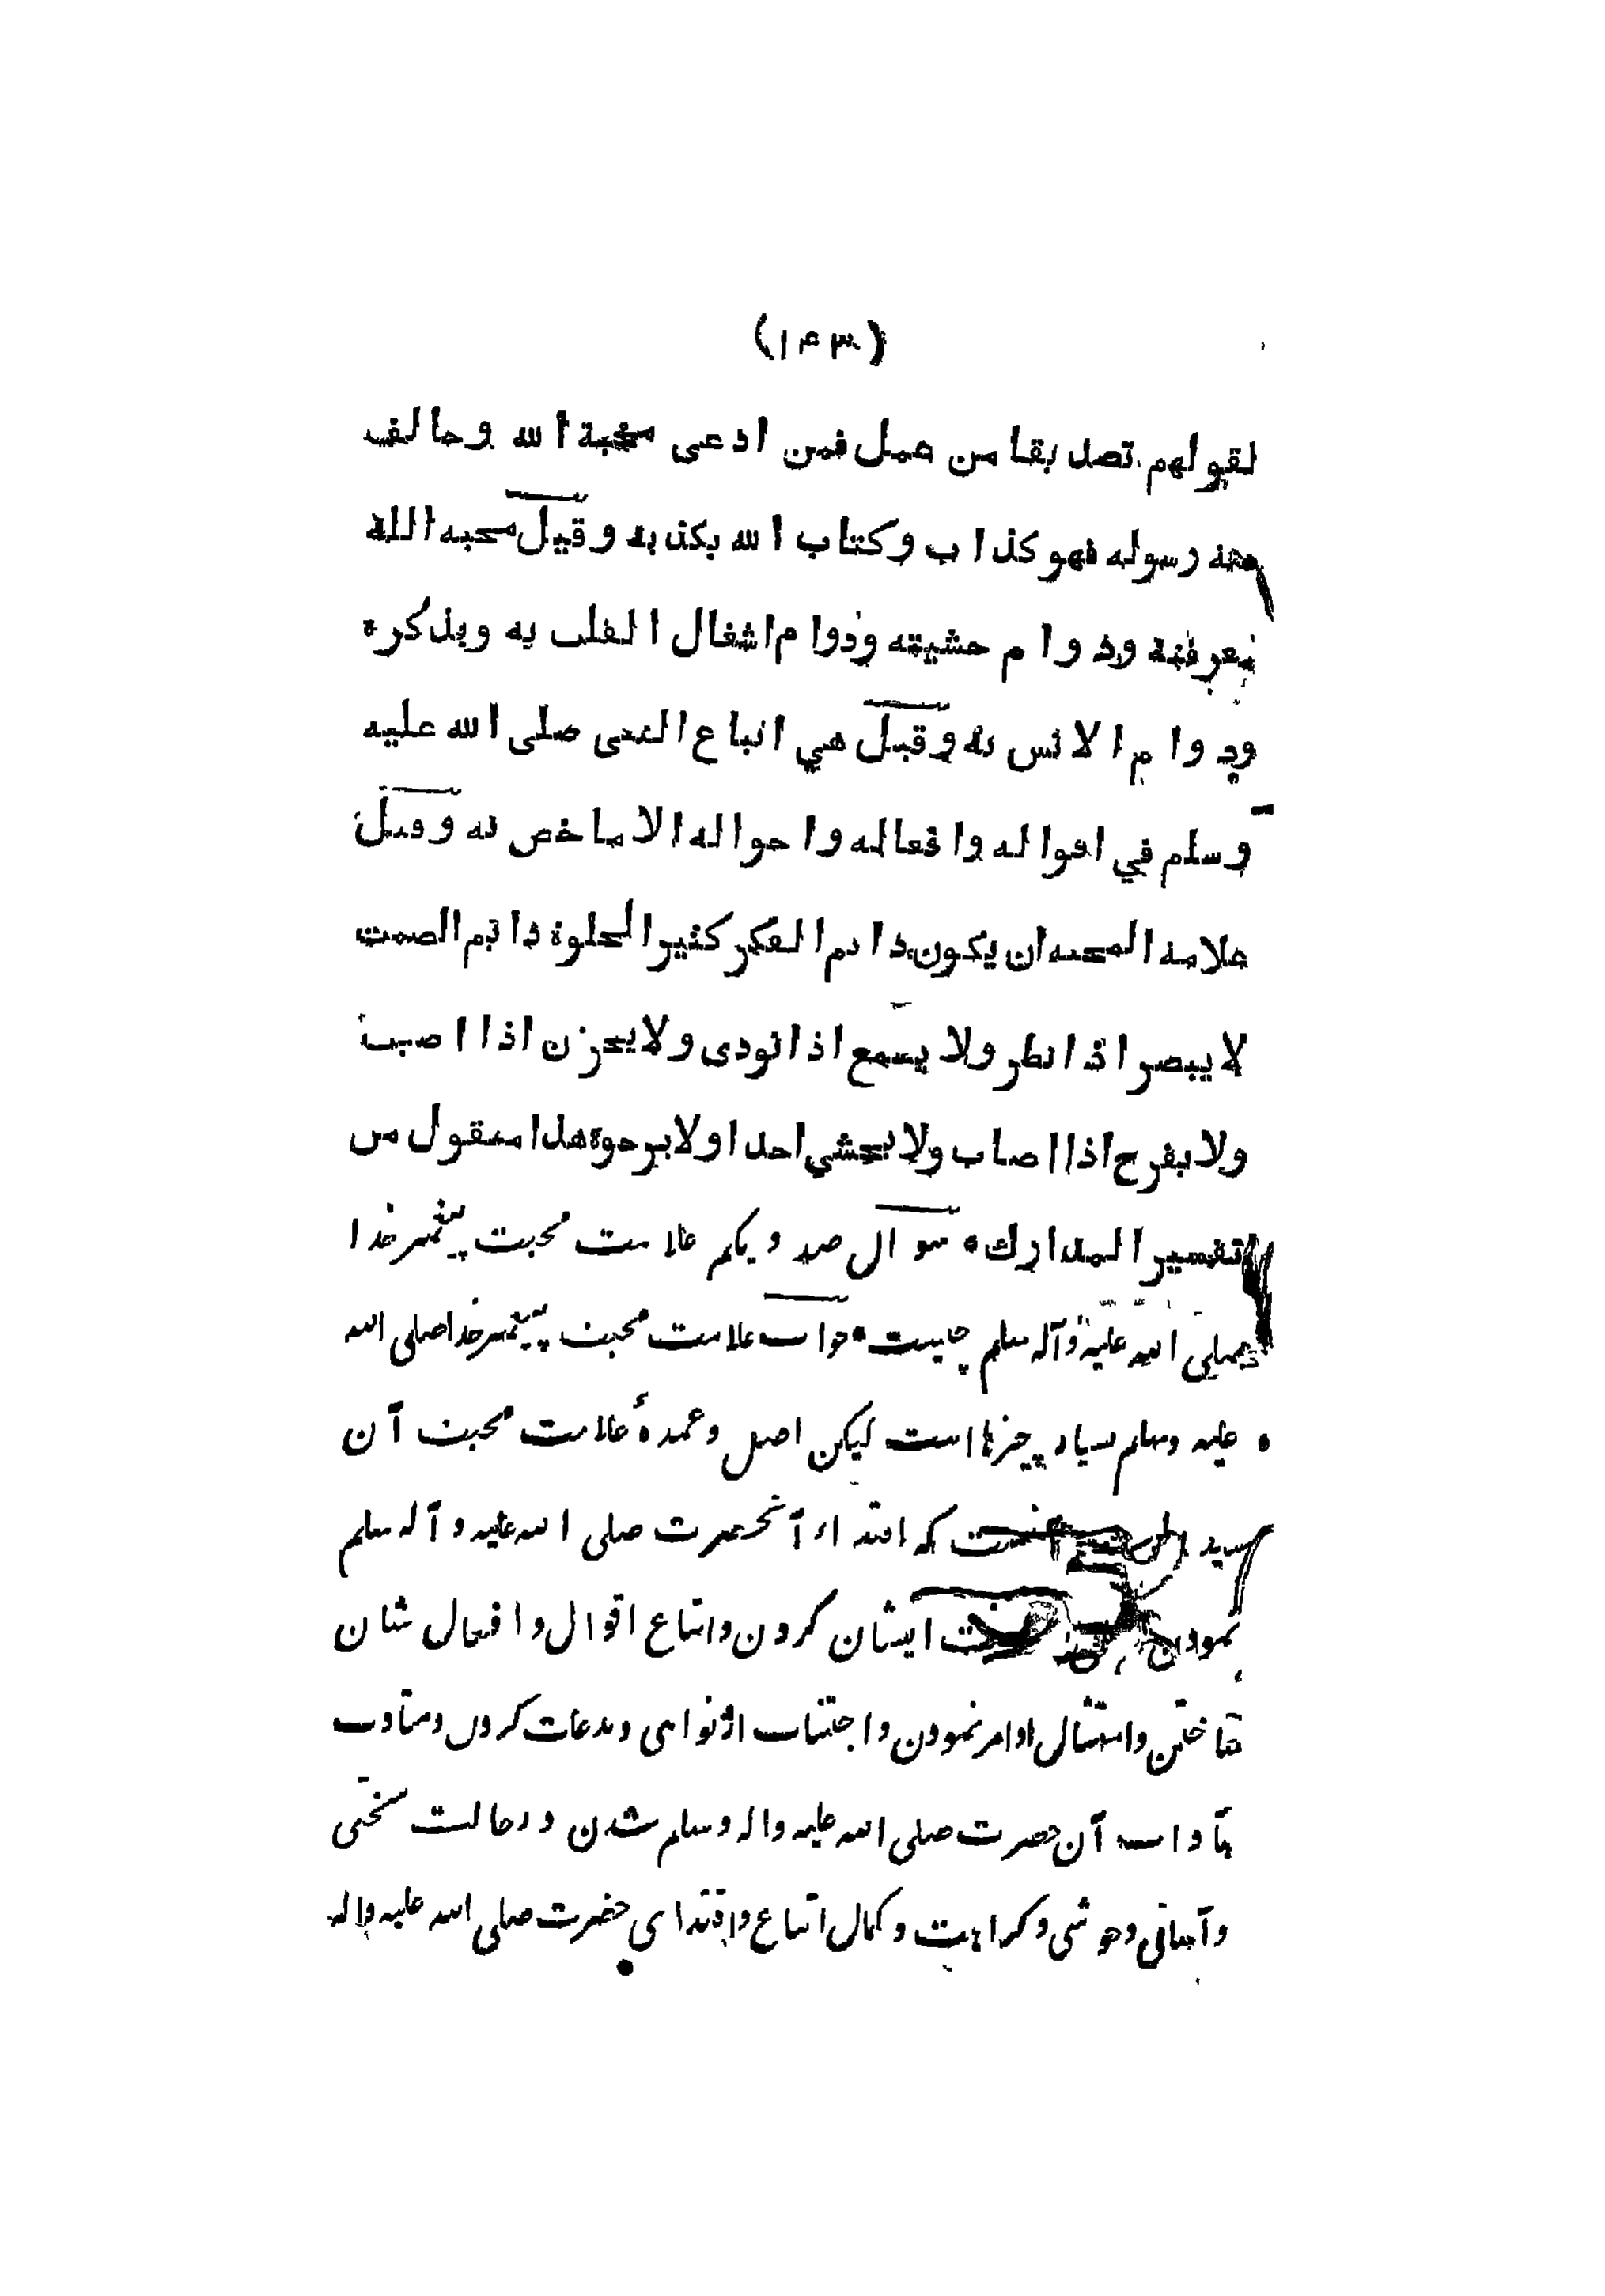 (۱۴۳)
لقولهم تصديقا من عمل فمن ادعى محبة الله وخالف
سنة رسوله فهو كذاب وكتاب الله يكذبه وقيل محبة الله
معرفته ودوام خشيته ودوام اشتغال القلب به وبذكره
ودوام الانس به وقيل هي اتباع النبى صلى الله عليه
وسلم في اقواله وافعاله واحواله الا ما خص به وقيل
علامة المحبة ان يكون دائم الفكر كثير الخلوة دائم الصمت
لا يبصر اذا نظر ولا يسمع اذا نودى ولا يحزن اذا اصيب
ولا يفرح اذا اصاب ولا يخشي احدا ولا يرجوه هذا منقول من
تفسير المدارك • سوال صد و يكم علامت محبت پيغمبر خدا
صلى الله عليه وآله سلم چيست • جواب علامت محبت پيغمبر خدا صلى الله
عليه وسلم بسيار چيزها است ليكن اصل و عمده ٔ علامت محبت آن
سيد آنست كه اقتداء آنحضرت صلى الله عليه و آله سلم
نمودن ايشان كردن واتباع اقوال وافعال شان
ساختن وامتثال اوامر نمودن واجتناب از نواهى و بدعات كردن ومتادب
بآداب آن حضرت صلى الله عليه واله وسلم شدن در حالت سختى
وآسانى وخوشى وكراهت وكمال اتباع واقتداى حضرت صلى الله عليه واله